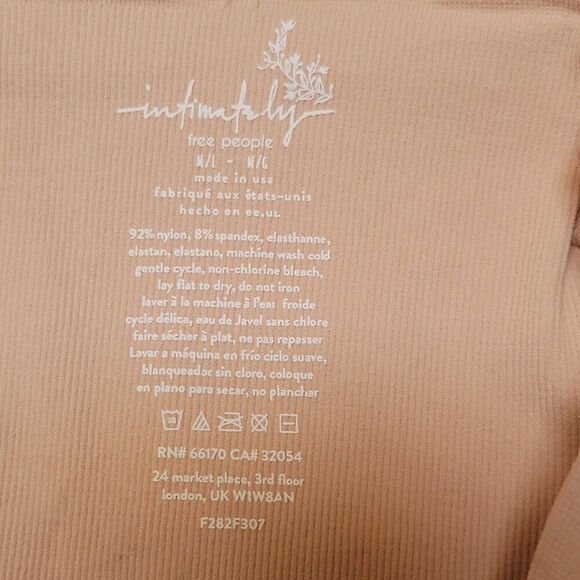 intimately
free people
M/L - M/G
made in usa
fabriqué aux états-unis
hecho en ee.uu.
92% nylon, 8% spandex, elasthanne,
elastan, elastano, machine wash cold
gentle cycle, non-chlorine bleach,
lay flat to dry, do not iron
laver à la machine à l'eau froide
cycle délica, eau de Javel sans chlore
faire sécher à plat, ne pas repasser
Lavar a máquina en frío ciclo suave,
blanqueador sin cloro, coloque
en plano para secar, no planchar
30
RN# 66170 CA# 32054
24 market place, 3rd floor
london, UK W1W8AN
F282F307